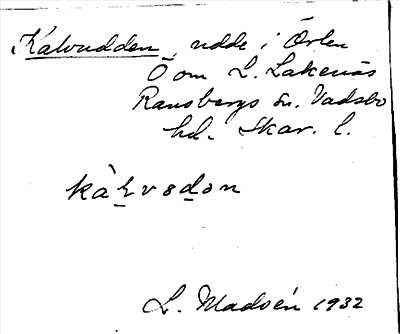 Kalvudden, udde i Örlen
Ö om L. Lakenäs
Ransbergs sn. Vadsbo
hd. Skar. l.
kàlvsdon
L. Madsén 1932